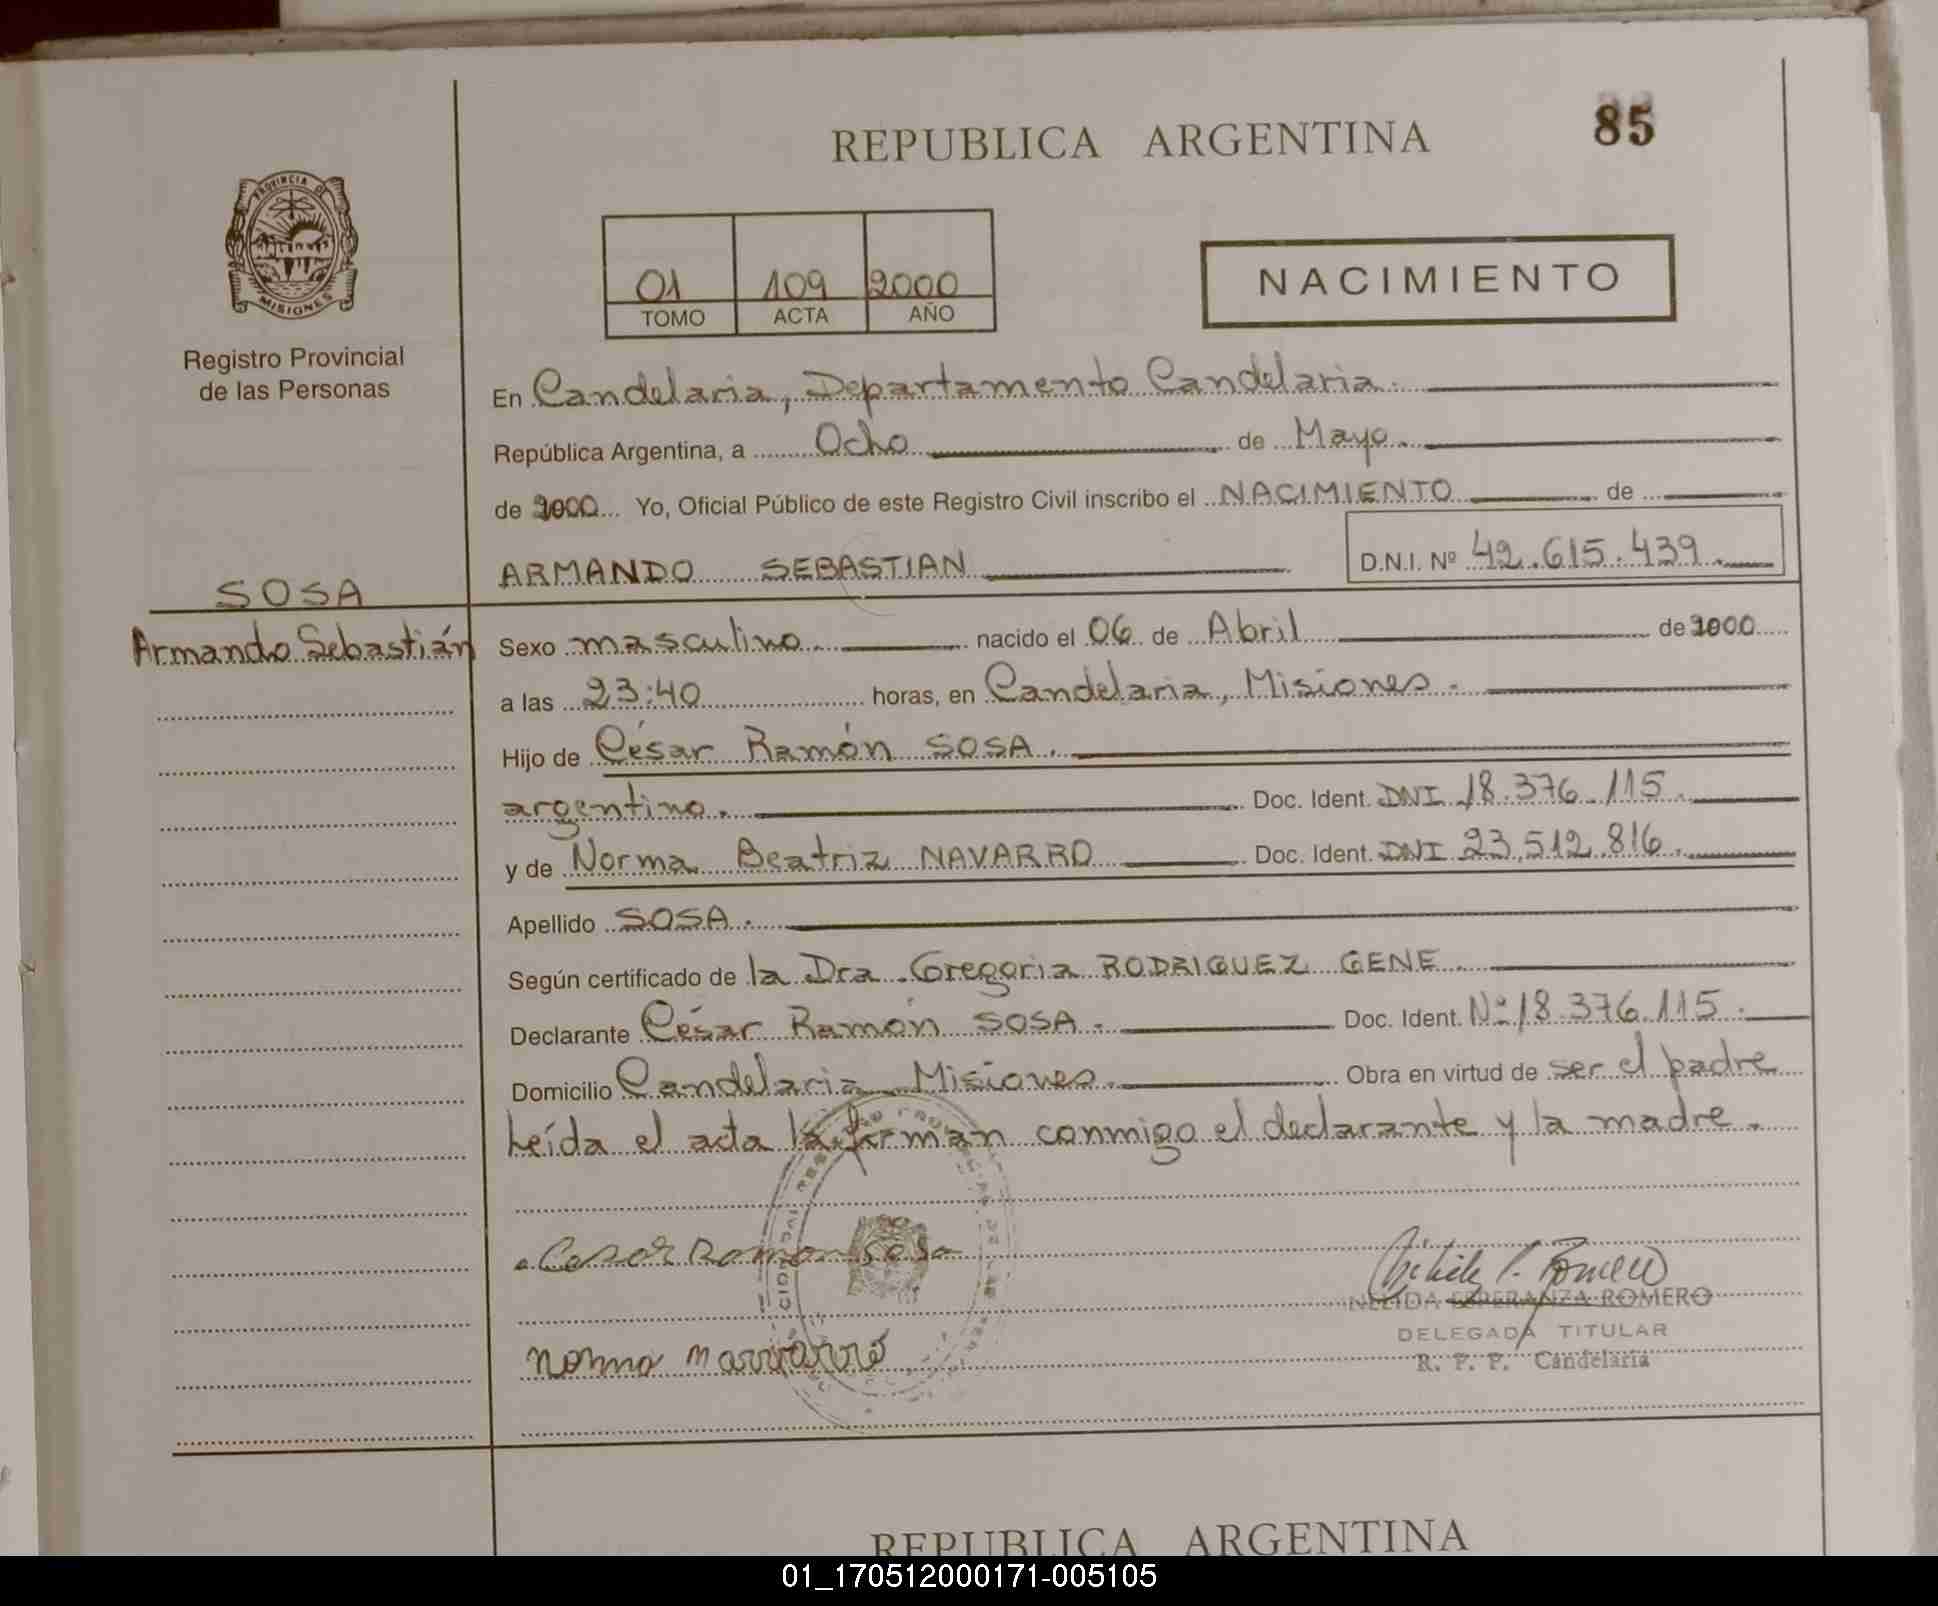 85
REPUBLICA ARGENTINA
PROVINCIA DE
MISIONES
Registro Provincial
de las Personas
01 109 2000
TOMO ACTA AÑO
NACIMIENTO
En Candelaria, Departamento Candelaria.
República Argentina, a Ocho de Mayo.
de 2000 Yo, Oficial Público de este Registro Civil inscribo el NACIMIENTO de
ARMANDO SEBASTIAN D.N.I. Nº 42.615.439.
SOSA
Armando Sebastián
Sexo masculino. nacido el 06 de Abril de 2000
a las 23:40 horas, en Candelaria, Misiones.
Hijo de César Ramón SOSA.
argentino. Doc. Ident. DNI 18.376.115.
y de Norma Beatriz NAVARRO Doc. Ident. DNI 23.512.816.
Apellido SOSA.
Según certificado de la Dra. Gregoria RODRIGUEZ GENE.
Declarante César Ramón SOSA. Doc. Ident. Nº 18.376.115.
Domicilio Candelaria Misiones. Obra en virtud de ser el padre
Leída el acta la firman conmigo el declarante y la madre.
Cesar Ramon Sosa
NELIDA ESPERANZA ROMERO
DELEGADA TITULAR
R. P. P. Candelaria
REPUBLICA ARGENTINA
01_170512000171-005105